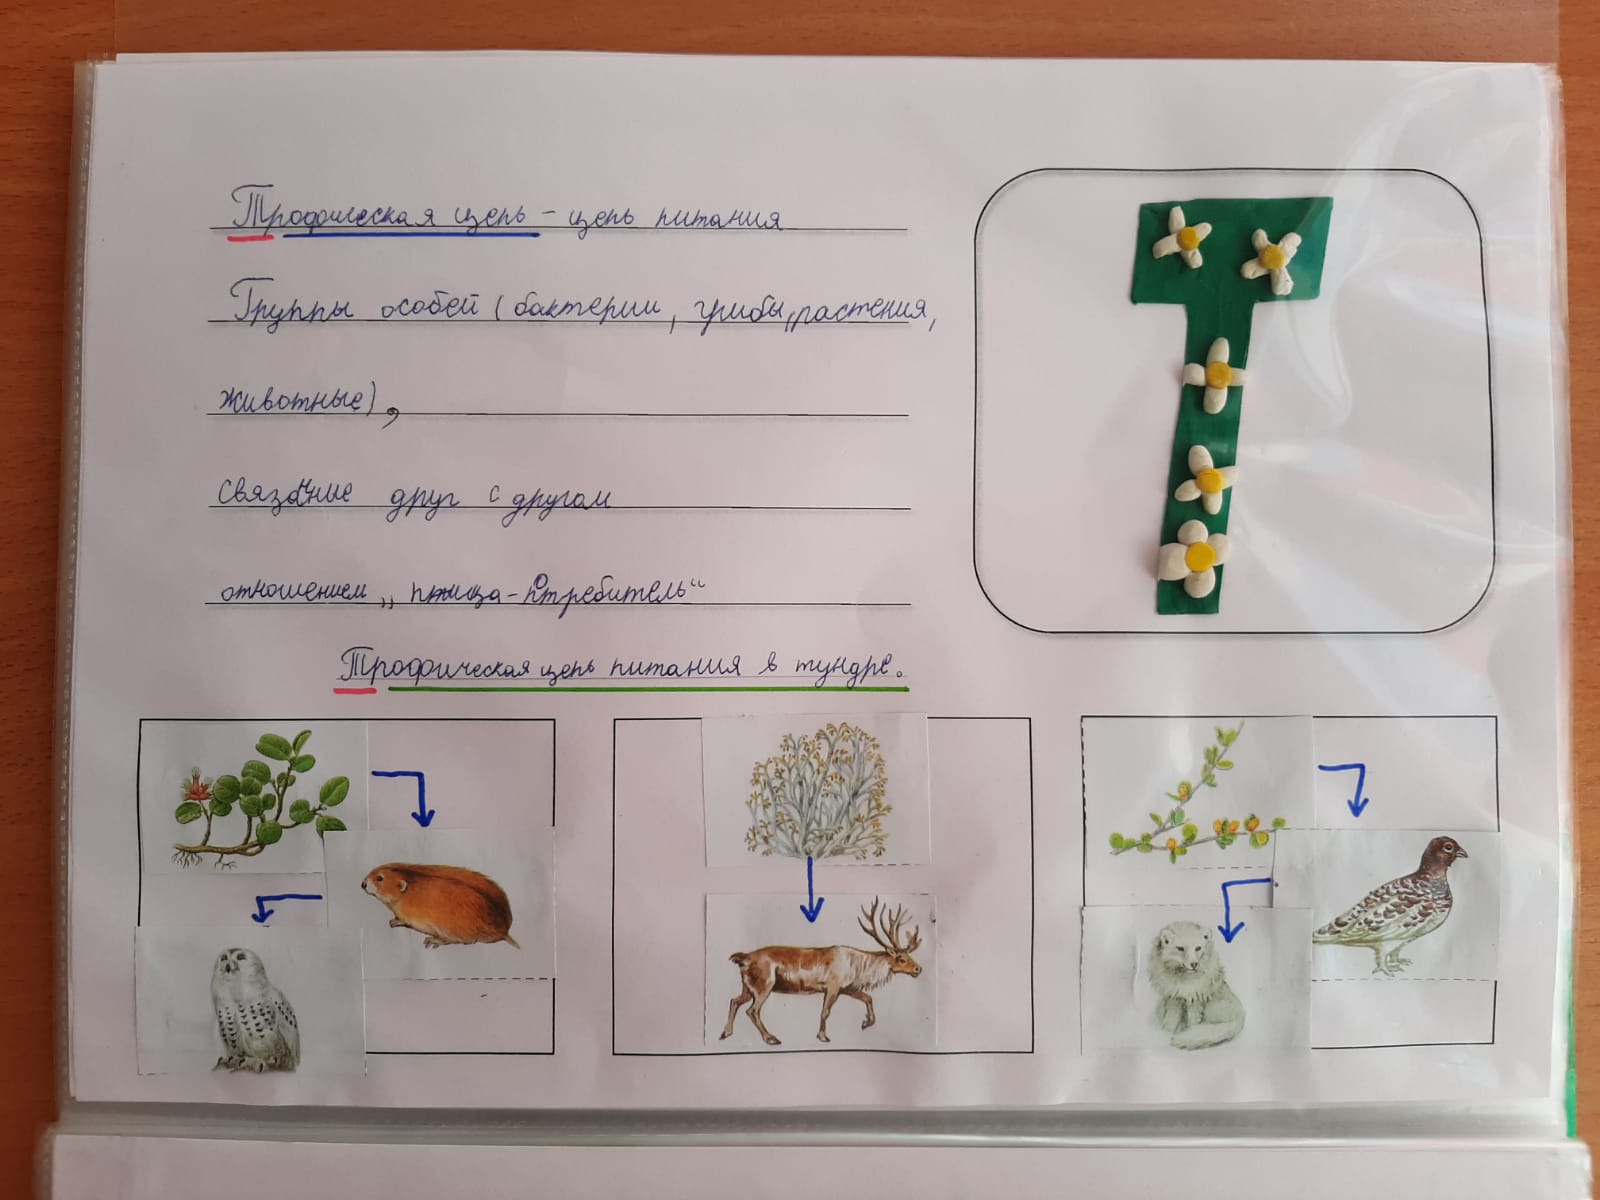 Трофическая цепь – цепь питания
Группы особей (бактерии, грибы, растения,
животные),
связанные друг с другом
отношением „пища-потребитель“
Трофическая цепь питания в тундре.
Т